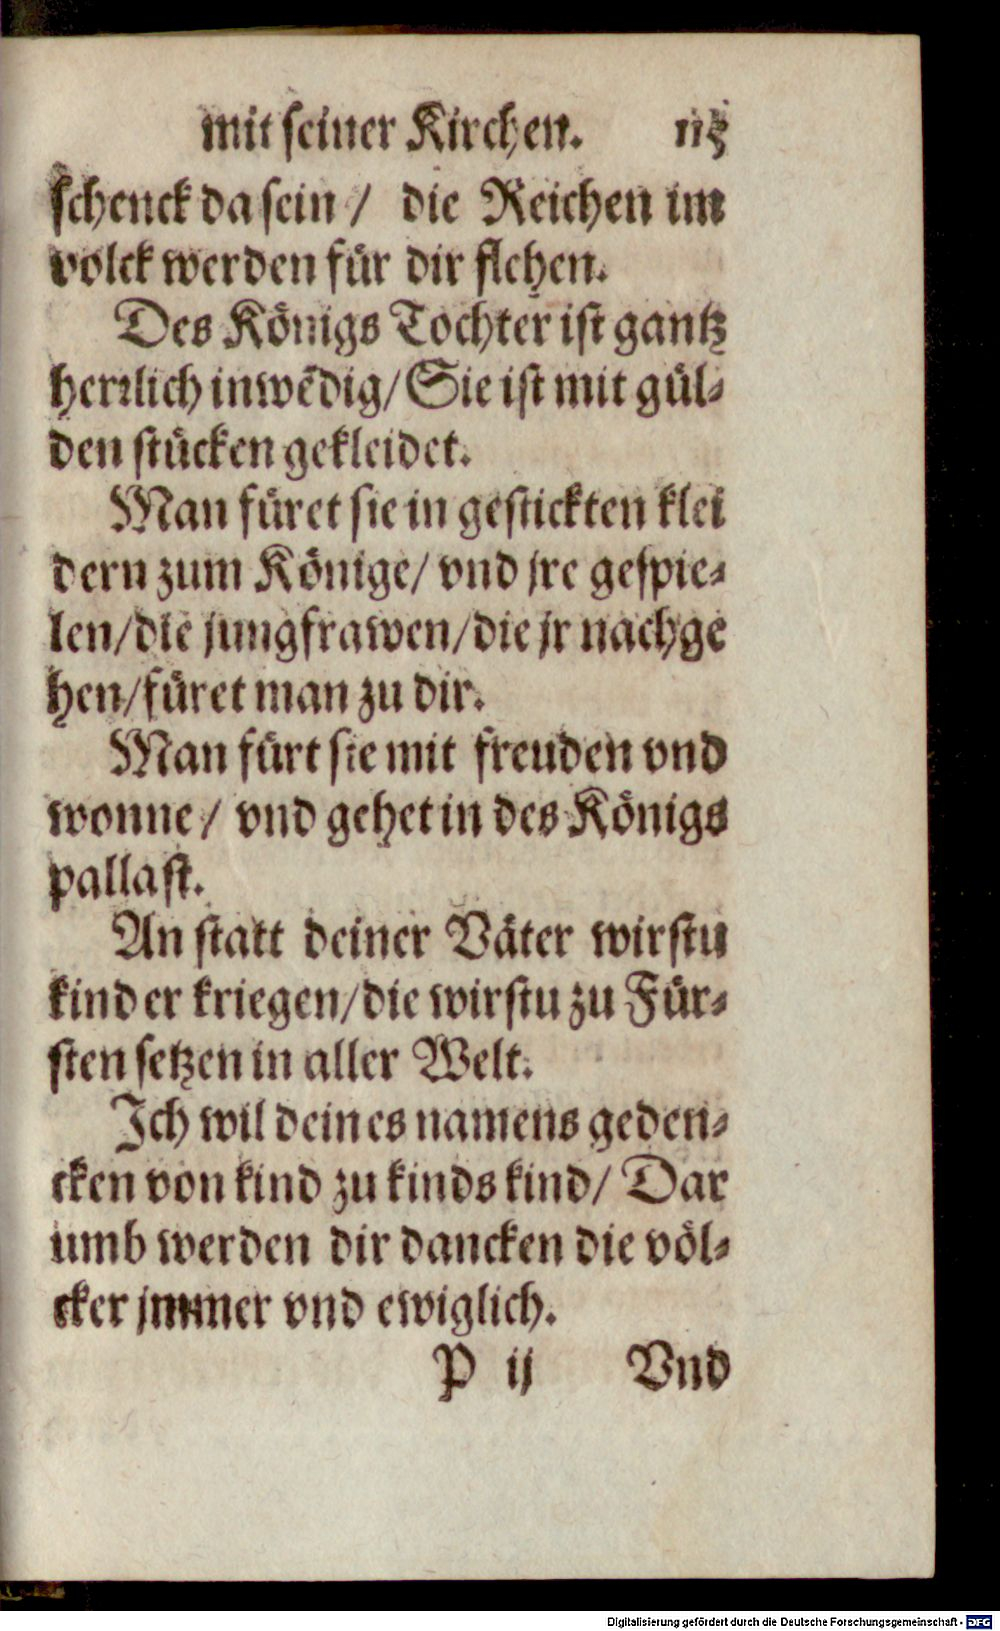 mit seiner Kirchen. 115
schenck da sein / die Reichen im
volck werden für dir flehen.
Des Königs Tochter ist gantz
herrlich inwēdig / Sie ist mit gül-
den stücken gekleidet.
Man füret sie in gestickten klei
dern zum Könige / vnd jre gespie-
len / die jungfrawen / die jr nachge
hen / füret man zu dir.
Man fürt sie mit freuden vnd
wonne / vnd gehet in des Königs
pallast.
An statt deiner Väter wirstu
kinder kriegen / die wirstu zu Für-
sten setzen in aller Welt.
Ich wil deines namens geden-
cken von kind zu kinds kind / Dar
umb werden dir dancken die völ-
cker jmmer vnd ewiglich.
P ij Vnd
Digitalisierung gefördert durch die Deutsche Forschungsgemeinschaft - DFG